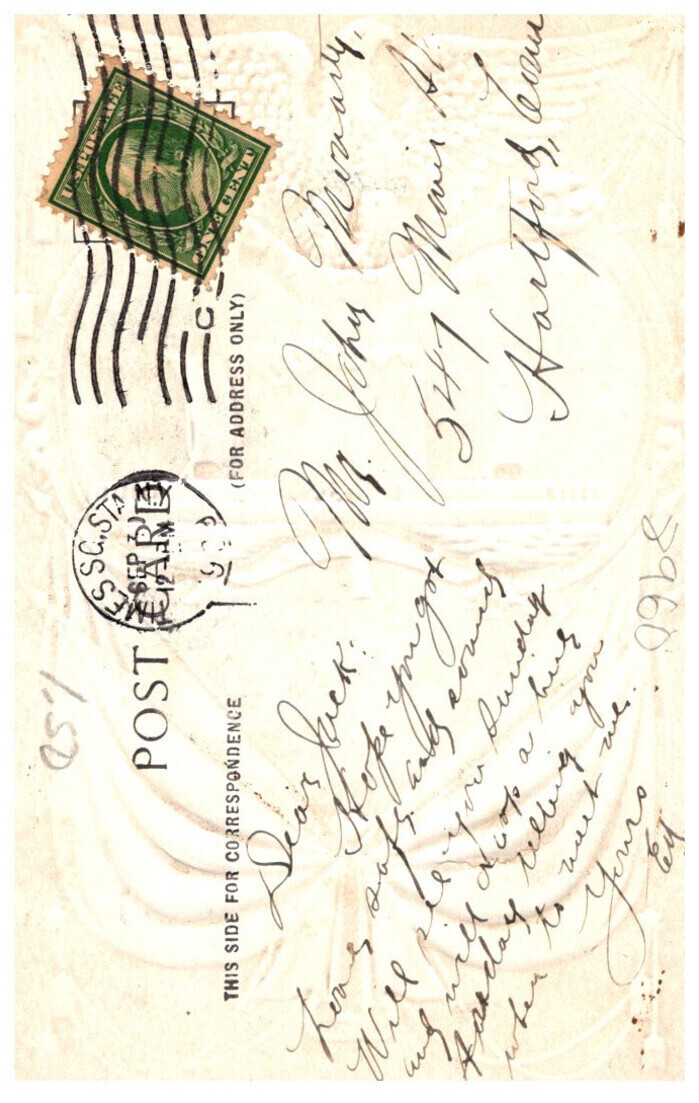 UNITED STATES
ONE CENT
C
MES SQ. STA.
SEP 7
12-
POST CARD
THIS SIDE FOR CORRESPONDENCE
(FOR ADDRESS ONLY)
Dear Jack:
Hope you got
home safe and sound
Will see you Sunday
and will drop a line
telling you
when to meet me.
Yours
Ed
Mr. John
547 Main St.
Hartford, Conn